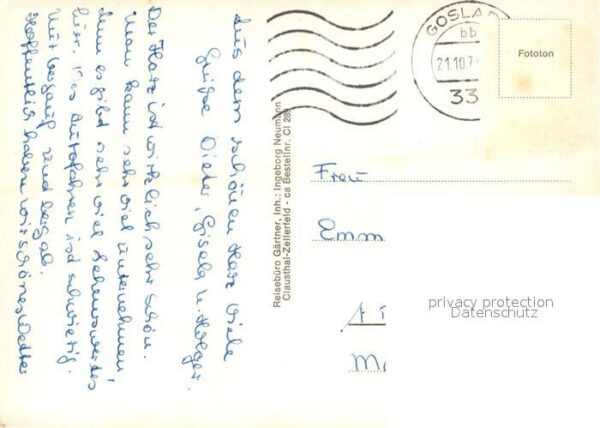 Aus dem schönen Harz viele
Grüße Dieter, Gisela u. Holger.
Der Harz ist wirklich sehr schön.
Man kann sehr viel unternehmen,
denn es gibt sehr viel Sehenswertes
hier. Das Autofahren ist schwierig.
Nur bergauf und bergab.
Hoffentlich haben wir schönes Wetter
Reisebüro Gärtner, Inh.: Ingeborg Neumann
Clausthal-Zellerfeld - ca Bestellnr. Cl 289
GOSLAR
bb
21.10.7
33
Fototon
Frau
Emm
privacy protection
Datenschutz